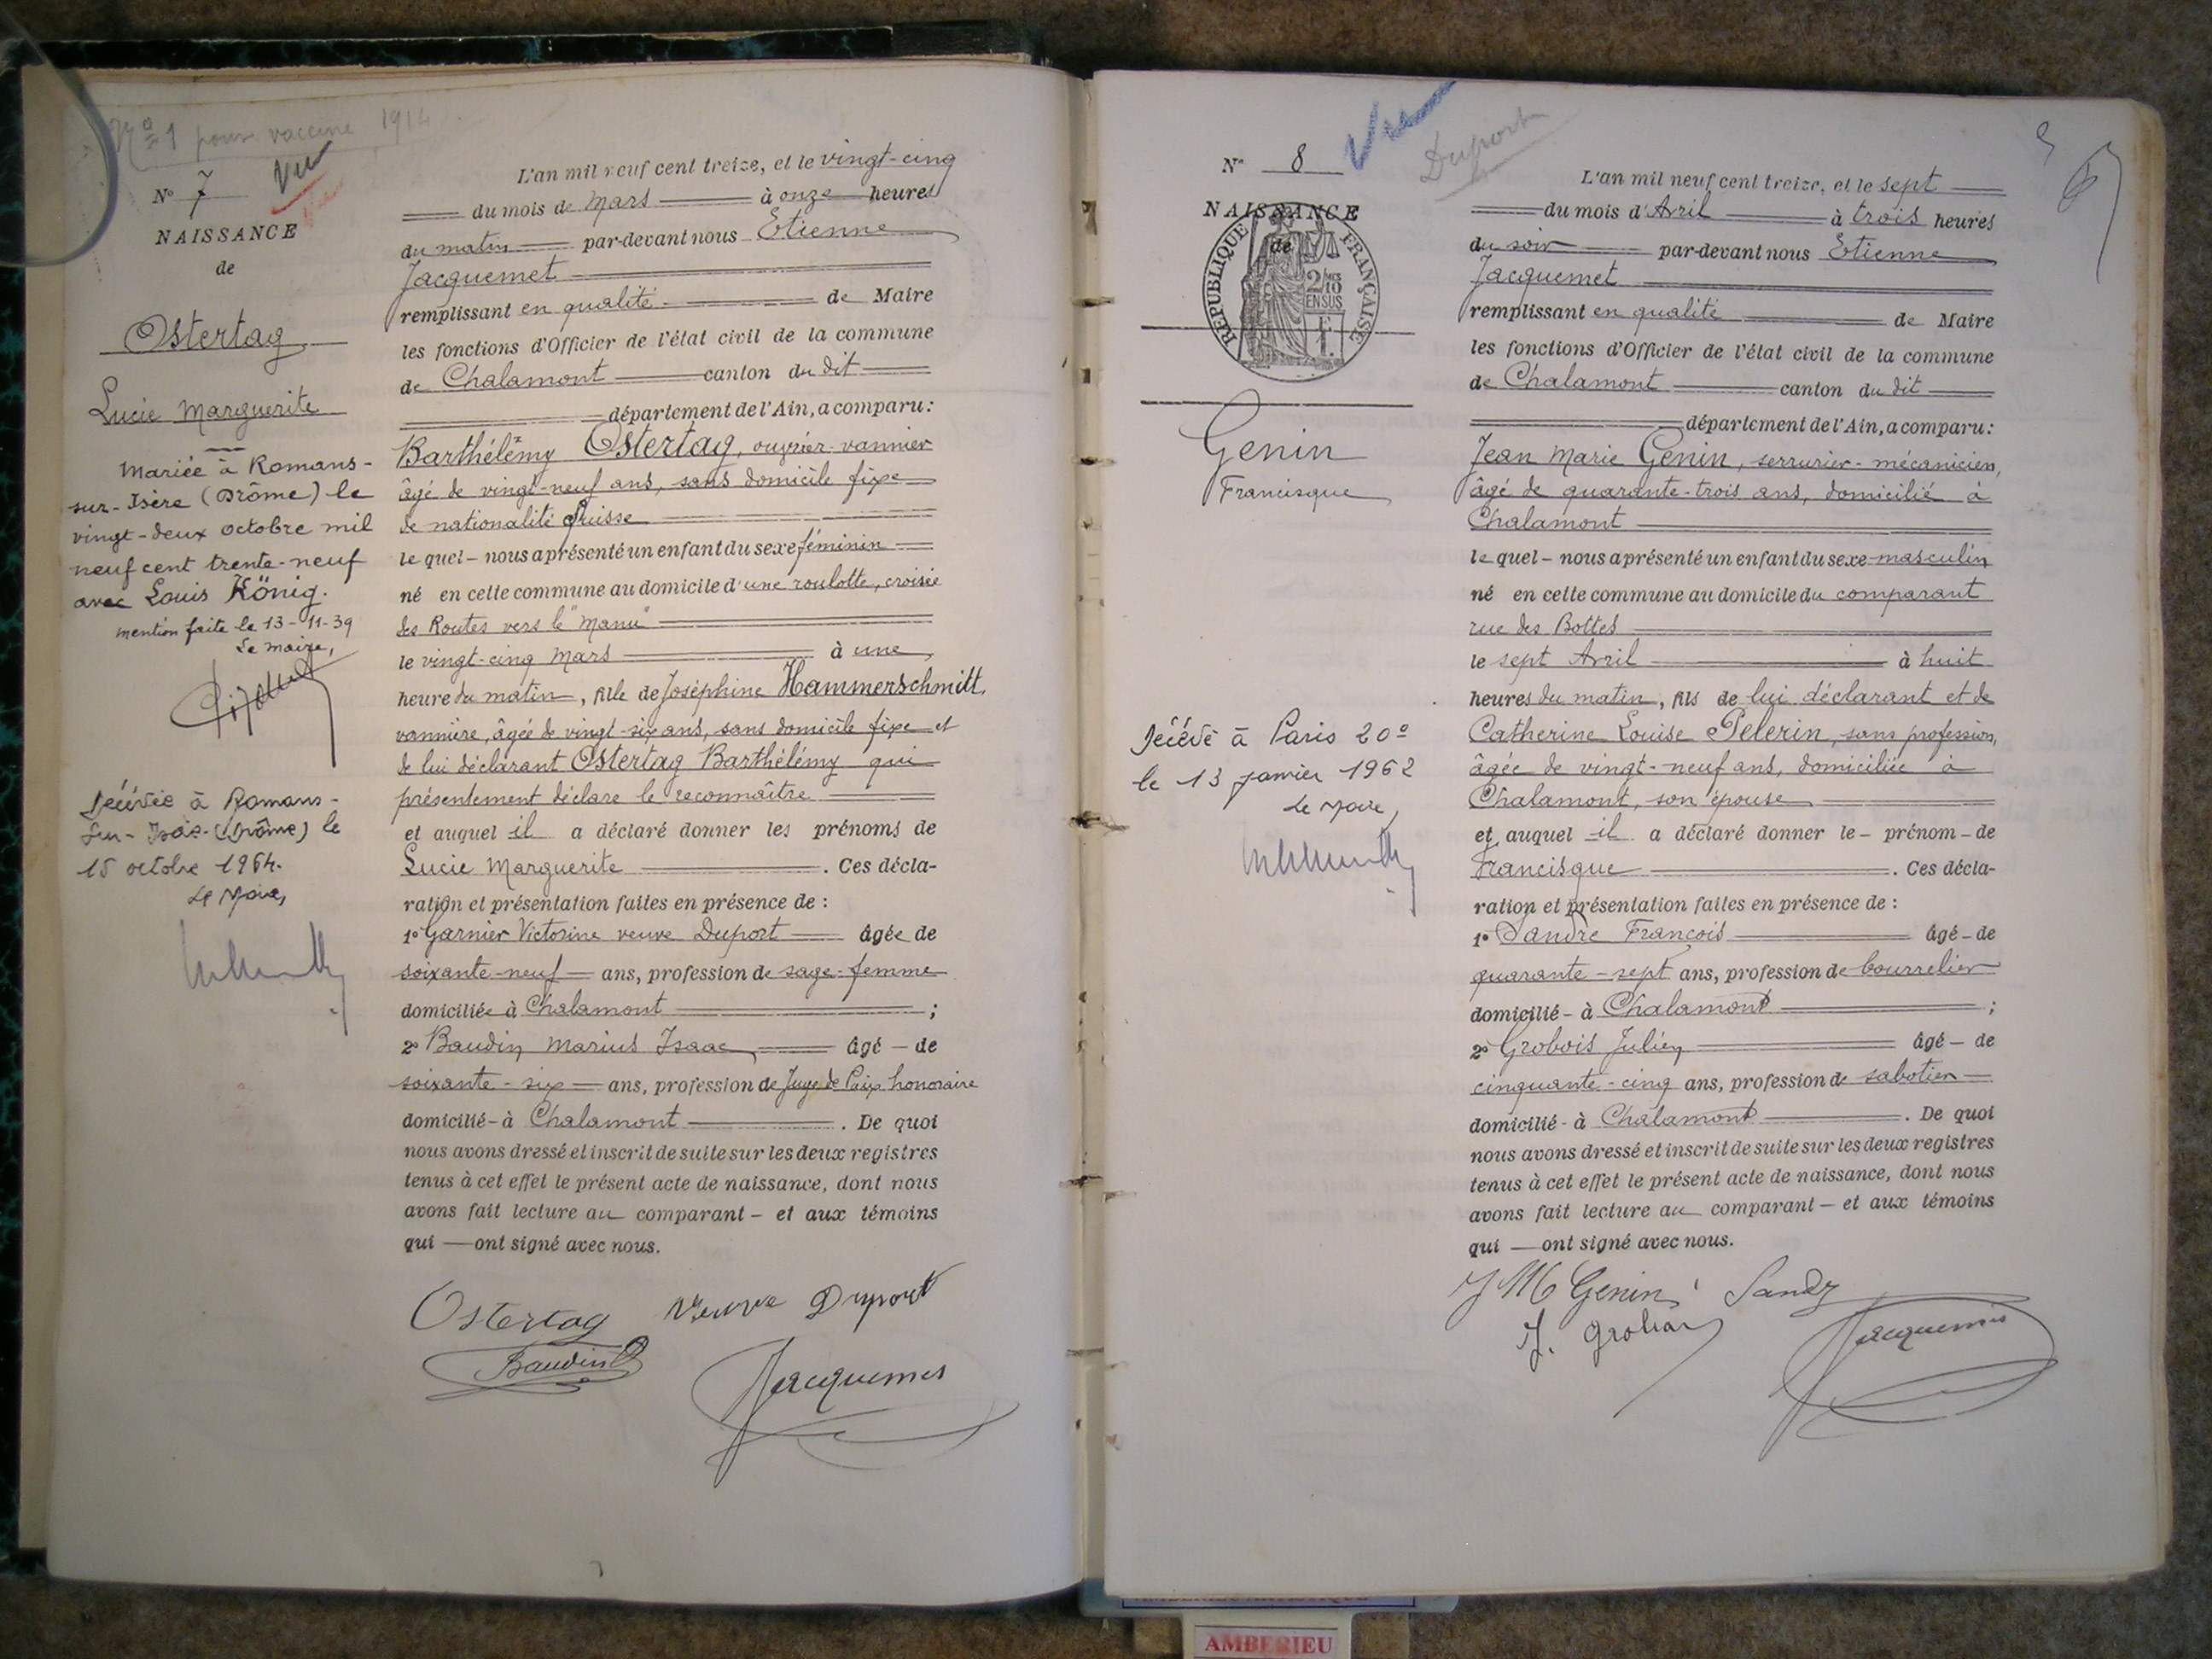 No 1 pour vaccine 1914
No 7
Vu
NAISSANCE
de
Ostertag
Lucie Marguerite
Mariée à Romans-
sur-Isère (Drôme) le
vingt-deux octobre mil
neuf cent trente-neuf
avec Louis König.
mention faite le 13-11-39
Le maire,
Décédée à Romans-
sur-Isère (Drôme) le
15 octobre 1964.
Le Maire,
L'an mil neuf cent treize, et le vingt-cinq
du mois de Mars à onze heures
du matin par-devant nous Etienne
Jacquemet
remplissant en qualité de Maire
les fonctions d'Officier de l'état civil de la commune
de Chalamont canton du dit
département de l'Ain, a comparu :
Barthélémy Ostertag, ouvrier-vannier
âgé de vingt-neuf ans, sans domicile fixe
de nationalité Suisse
le quel - nous a présenté un enfant du sexe féminin
né en cette commune au domicile d'une roulotte, croisée
des Routes vers le "Manu"
le vingt-cinq Mars à une
heure du matin, fille de Joséphine Hammerschmitt,
vannière, âgée de vingt-six ans, sans domicile fixe et
de lui déclarant Ostertag Barthélémy qui
présentement déclare le reconnaître
et auquel il a déclaré donner les prénoms de
Lucie Marguerite. Ces décla-
ration et présentation faites en présence de :
1o Garnier Victorine veuve Duport âgée de
soixante-neuf ans, profession de sage-femme
domiciliée à Chalamont ;
2o Baudin Marius Isaac, âgé - de
soixante-six ans, profession de Juge de Paix honoraire
domicilié - à Chalamont. De quoi
nous avons dressé et inscrit de suite sur les deux registres
tenus à cet effet le présent acte de naissance, dont nous
avons fait lecture au comparant - et aux témoins
qui — ont signé avec nous.
Ostertag Veuve Duport
Baudin
Jacquemet
No 8
Vu
Duport
NAISSANCE
de
REPUBLIQUE FRANÇAISE
2/10
EN SUS
Genin
Francisque
Décédé à Paris 20e
le 13 janvier 1962
Le Maire,
L'an mil neuf cent treize, et le sept
du mois d'Avril à trois heures
du soir par-devant nous Etienne
Jacquemet
remplissant en qualité de Maire
les fonctions d'Officier de l'état civil de la commune
de Chalamont canton du dit
département de l'Ain, a comparu :
Jean Marie Genin, serrurier-mécanicien,
âgé de quarante-trois ans, domicilié à
Chalamont
le quel - nous a présenté un enfant du sexe masculin
né en cette commune au domicile du comparant
rue des Bottes
le sept Avril à huit
heures du matin, fils de lui déclarant et de
Catherine Louise Pelerin, sans profession,
âgée de vingt-neuf ans, domiciliée à
Chalamont, son épouse
et auquel il a déclaré donner le - prénom - de
Francisque. Ces décla-
ration et présentation faites en présence de :
1o Sandre François âgé - de
quarante-sept ans, profession de bourrelier
domicilié - à Chalamont ;
2o Grobois Julien âgé - de
cinquante-cinq ans, profession de sabotier
domicilié - à Chalamont. De quoi
nous avons dressé et inscrit de suite sur les deux registres
tenus à cet effet le présent acte de naissance, dont nous
avons fait lecture au comparant - et aux témoins
qui — ont signé avec nous.
J M Genin
J. Grobois
Jacquemet
AMBERIEU